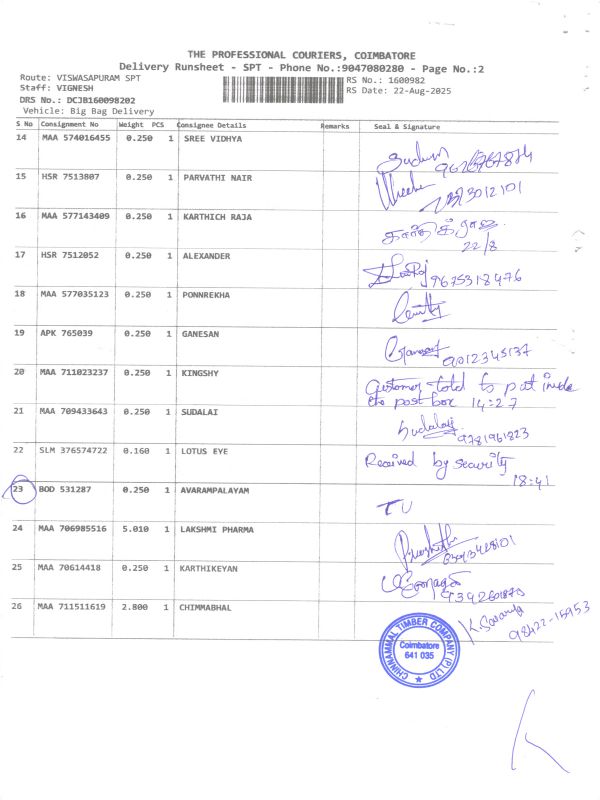 THE PROFESSIONAL COURIERS, COIMBATORE
Delivery Runsheet - SPT - Phone No.:9047080280 - Page No.:2
Route: VISWASAPURAM SPT
RS No.: 1600982
Staff: VIGNESH
RS Date: 22-Aug-2025
DRS No.: DCJB160098202
Vehicle: Big Bag Delivery
S No Consignment No Weight PCS Consignee Details Remarks Seal & Signature
14 MAA 574016455 0.250 1 SREE VIDHYA
15 HSR 7513807 0.250 1 PARVATHI NAIR
16 MAA 577143409 0.250 1 KARTHICH RAJA கார்த்திக் ராஜா
22/8
17 HSR 7512052 0.250 1 ALEXANDER
9675318476
18 MAA 577035123 0.250 1 PONNREKHA
19 APK 765039 0.250 1 GANESAN
Ganesan 9012345137
20 MAA 711023237 0.250 1 KINGSHY Customer told to put inside
the post box 14:27
21 MAA 709433643 0.250 1 SUDALAI Sudalai
9781961823
22 SLM 376574722 0.160 1 LOTUS EYE Received by security
18:41
23 BOD 531287 0.250 1 AVARAMPALAYAM TU
24 MAA 706985516 5.010 1 LAKSHMI PHARMA
25 MAA 70614418 0.250 1 KARTHIKEYAN
26 MAA 711511619 2.800 1 CHIMMABHAL K. Saranya
98422-15953
CHINNAMMAL TIMBER COMPANY (P) LTD
Coimbatore
641 035